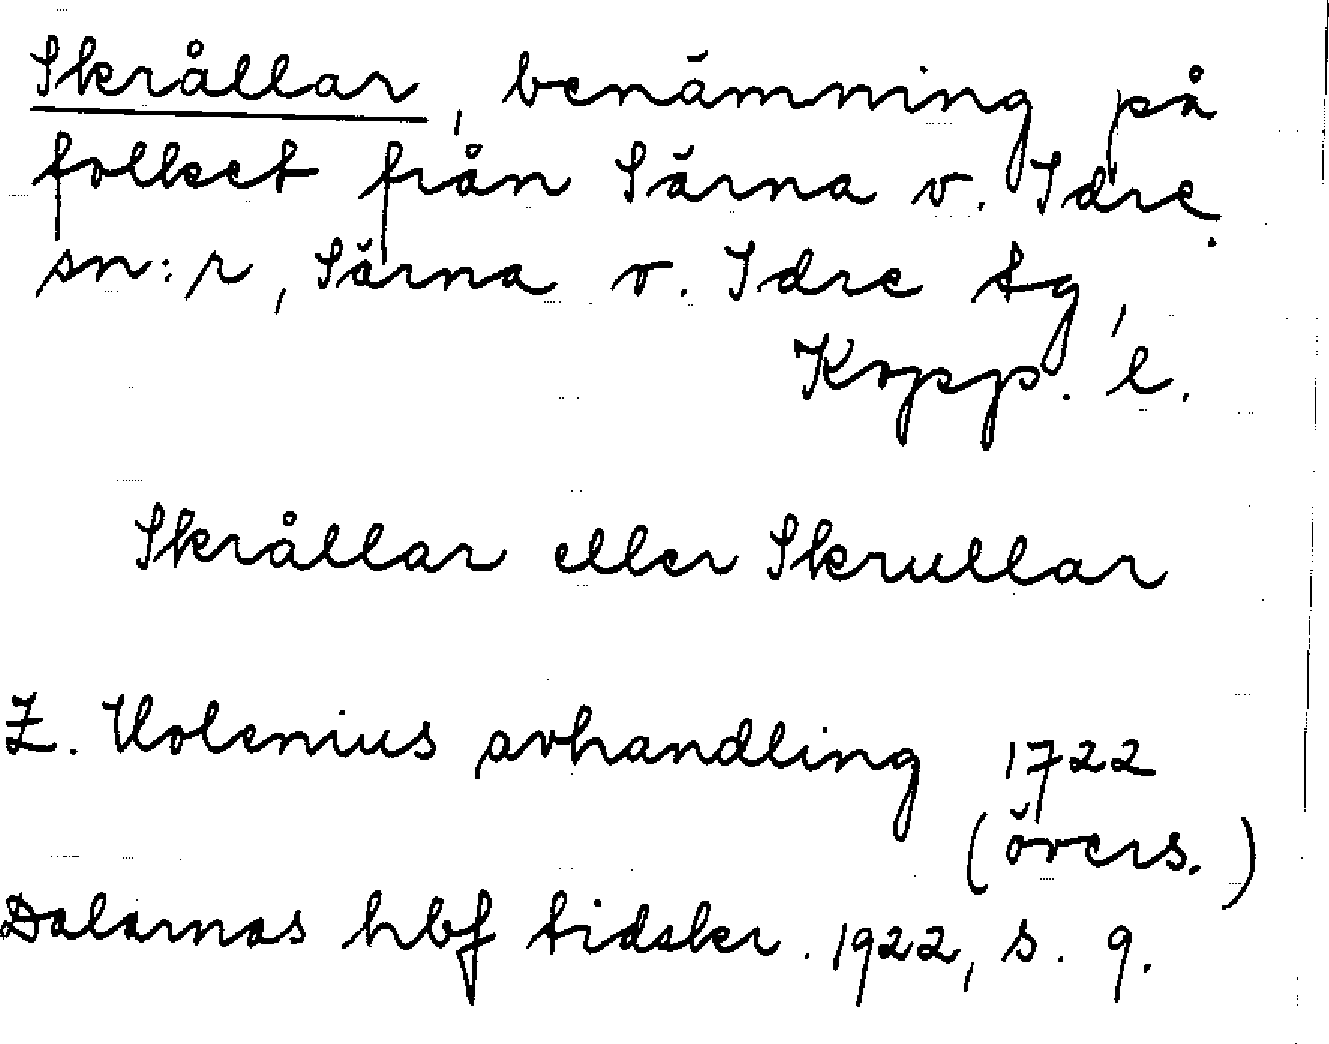 Skrållar, benämning på
folket från Särna o. Idre
sn:r, Särna o. Idre tg,
Kopp. l.
Skrållar eller Skrullar
Z. Holenius avhandling 1722
(övers.)
Dalarnas hbf tidskr. 1922, s. 9.